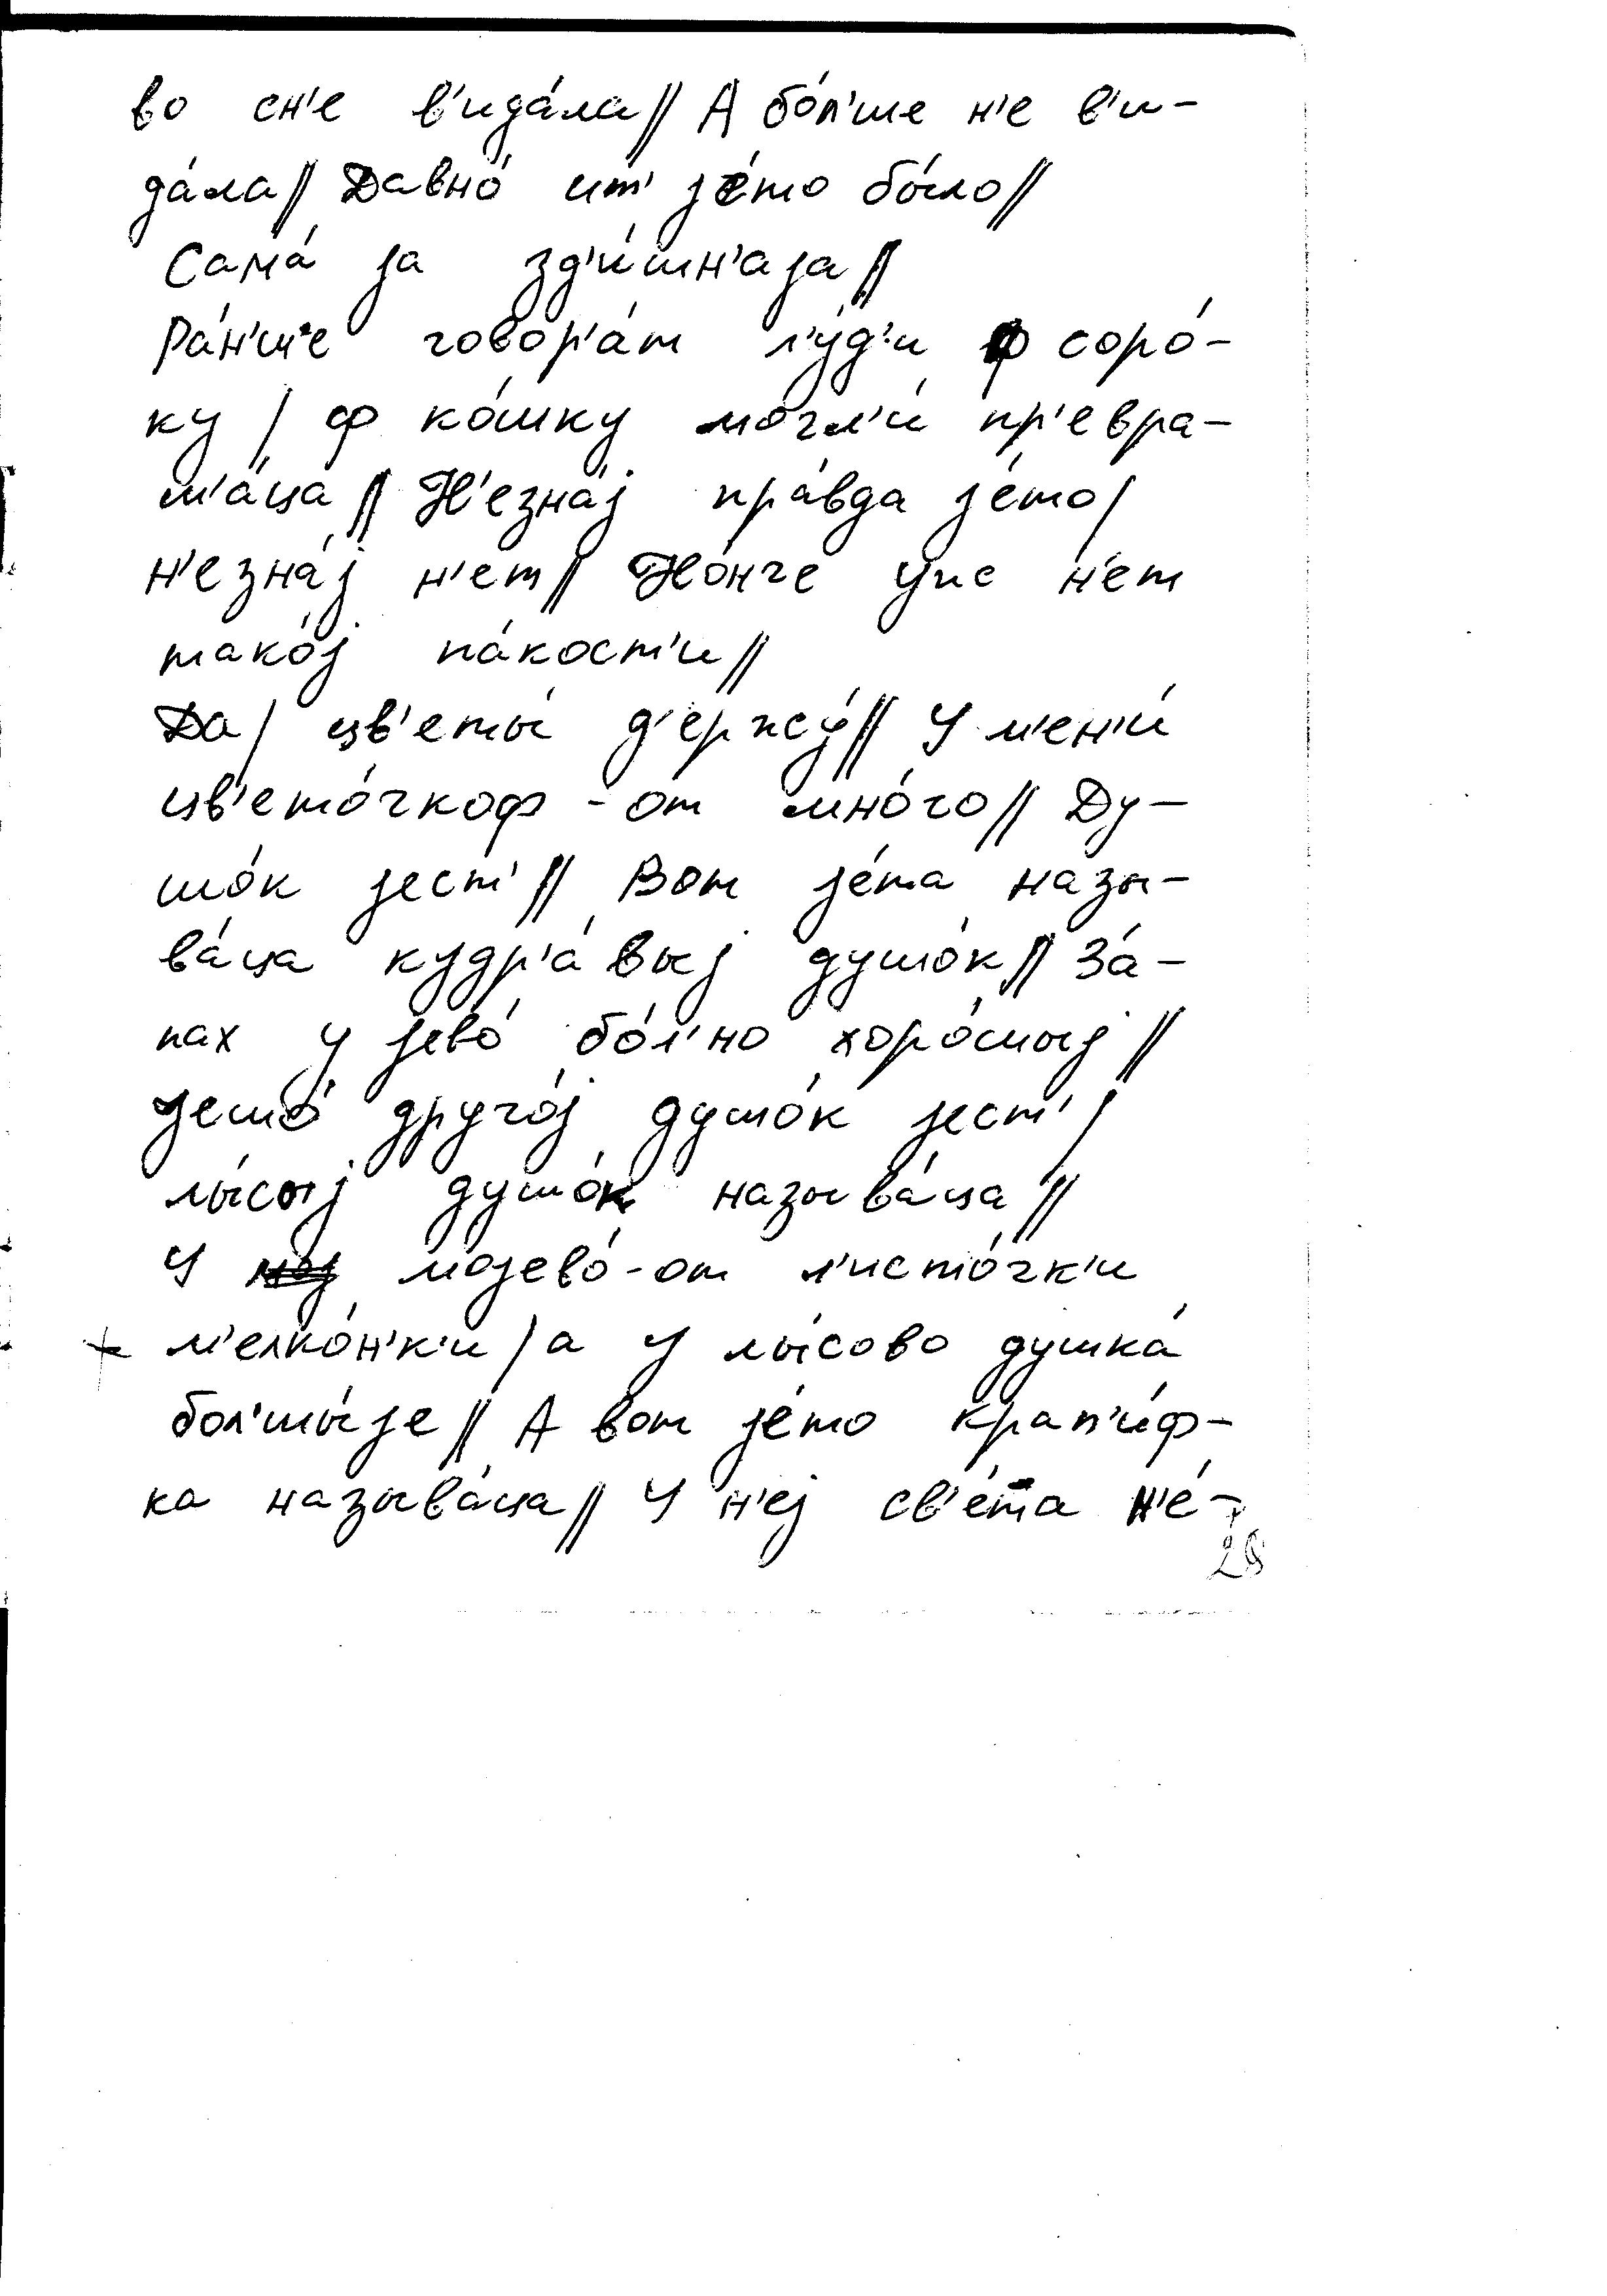 во сн'е в'ида́ла// А бо́л'ше н'е в'и-
да́ла// Давно́ ит' jе́то бы́ло//
Сама́ jа зд'и́шн'аjа//
Ра́н'ш'е говор'а́т л'у́д'и ф соро́-
ку / ф ко́шку могл'и́ пр'евра-
т'а́ца// Н'езна́j пра́вда jе́то/
н'езна́j н'ет// Но́нче уж н'ет
тако́j па́кост'и//
Да/ цв'еты́ д'ержу́// У м'ен'и́
цв'ето́чкоф-от мно́го// Ду-
шо́к jест'// Вот jе́та назы-
ва́ца кудр'а́выj душо́к// За́-
пах у jево́ бо́л'но хоро́шыj//
Jешо́ друго́j душо́к jест'/
лы́сыj душо́к называ́ца//
У моjево́-от л'исто́чк'и
м'елко́н'к'и / а у лы́сово душка́
бол'шы́jе// А вот jе́то крап'и́ф-
ка называ́ца// У н'еj св'е́та н'е́-
28